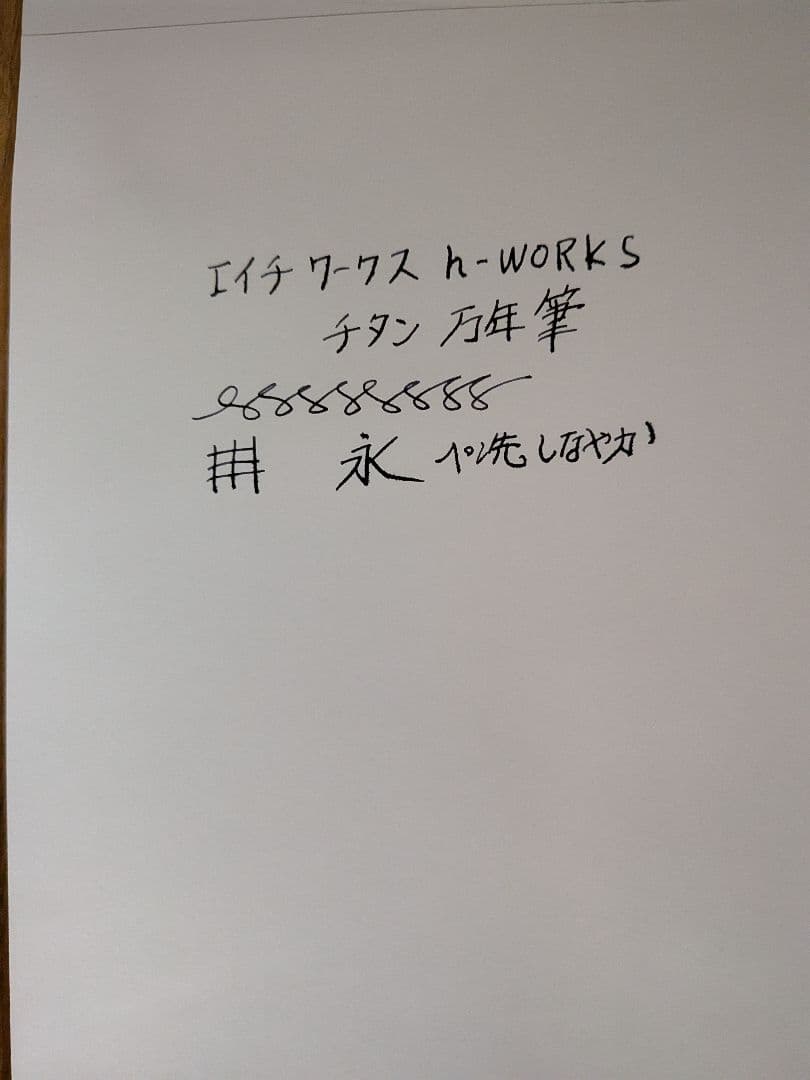 エイチワークス h-WORKS
チタン 万年筆
永 ペン先しなやか